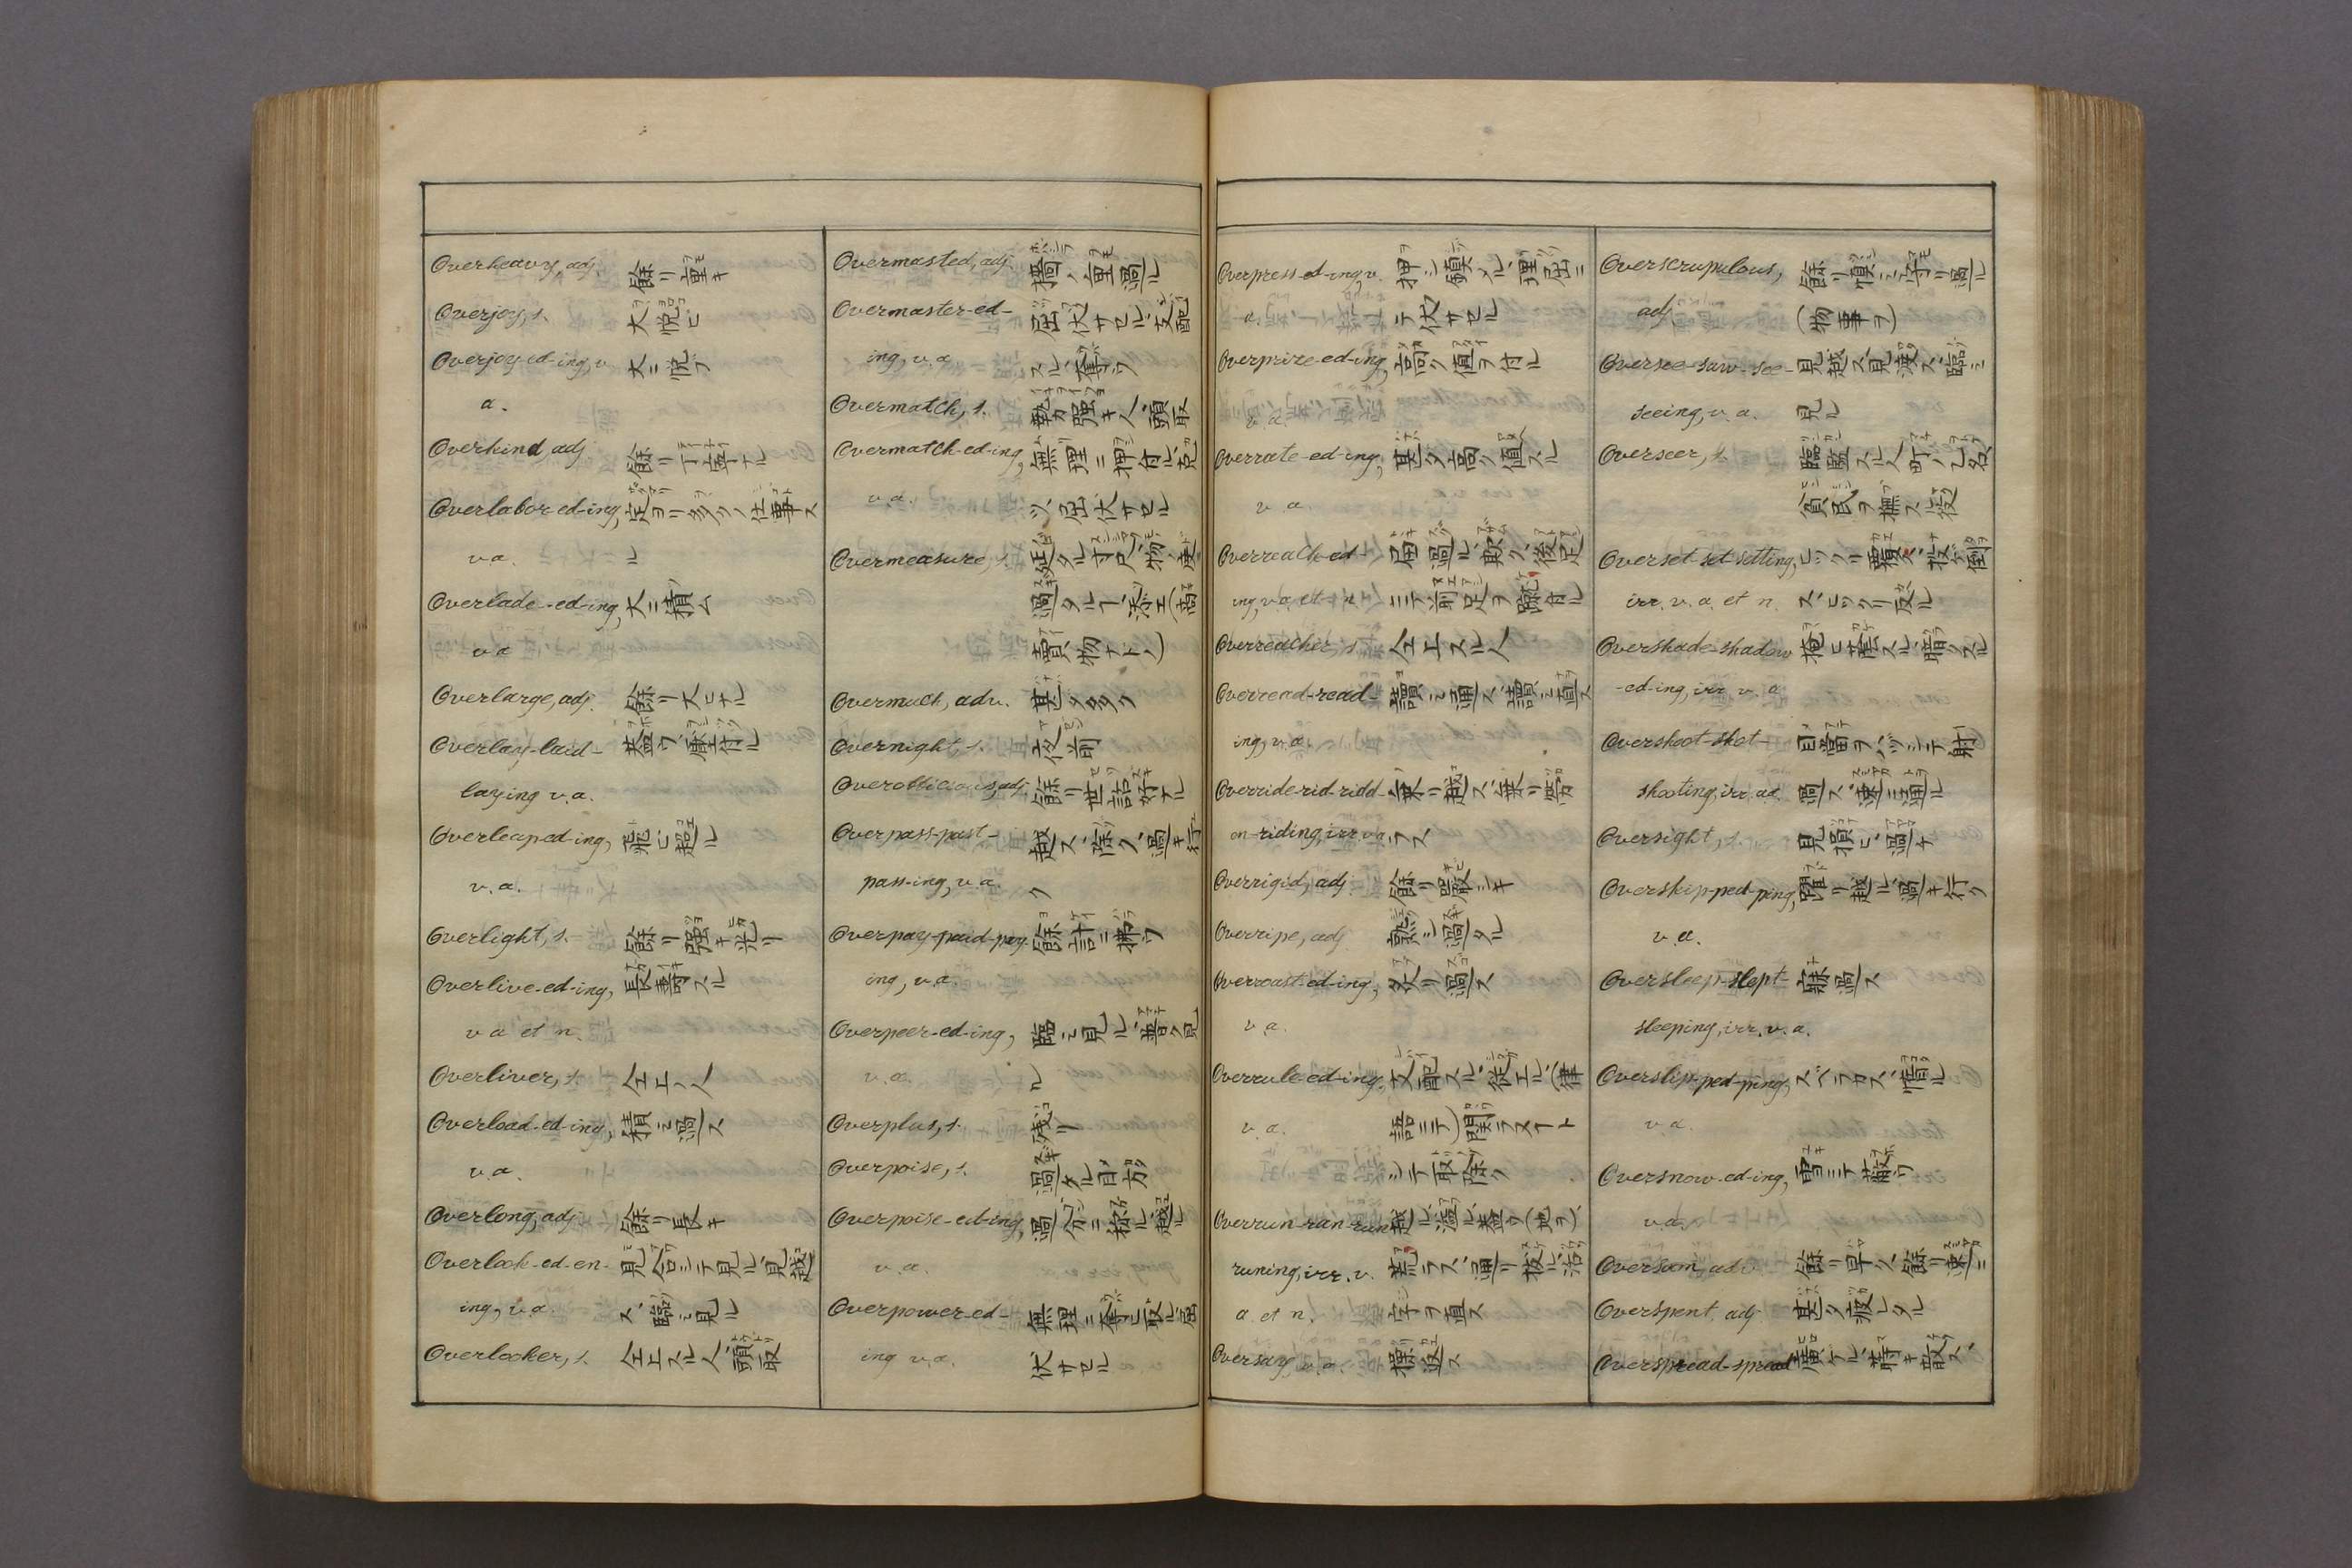 Overheavy, adj. 餘リ重キ
Overjoy, s. 大悦ヒ
Overjoy-ed-ing, v. 大ニ悦ブ
a.
Overkind, adj. 餘リ丁寧ナル
Overlabor-ed-ing, 定ヨリ多クノ仕事ス
va. ル
Overlade-ed-ing, 大ニ積ム
va
Overlarge, adj. 餘リ大ヒナル
Overlay-laid- 蓋フ、壓付ル
laying v.a.
Overleap-ed-ing, 飛ヒ超ル
v.a.
Overlight, s. 餘リ强キ光リ
Overlive-ed-ing, 長壽スル
v a et n.
Overliver, s. 仝上ノ人
Overload-ed-ing, 積ミ過ス
v.a.
Overlong, adj. 餘リ長キ
Overlook-ed-en- 見合シテ見ル、見越
ing, v.a. ス、臨ミ見ル
Overlooker, s. 仝上スル人、頭取
Overmasted, adj. 檣ノ重過ル
Overmaster-ed- 屈伏サセル、支配
ing, v.a スル、奪フ
Overmatch, s. 勢力强キ人、頭取
Overmatch-ed-ing, 無理ニ押付ル、克
v.a. ツ、屈伏サセル
Overmeasure, s. 延タル寸尺、物ノ度
過タルコト、添エ(商
賣物ナドノ)
Overmuch, adv. 甚タ多ク
Overnight, s. 夜前
Overofficious, adj. 餘リ世話好ナル
Overpass-past- 越ス、除ク、過キ行
pass-ing, v.a. ク
Overpay-paid-pay- 餘計ニ拂フ
ing, v.a.
Overpeer-ed-ing, 臨ミ見ル、普ク見
v.a. ル
Overplus, s. 殘リ
Overpoise, s. 過タル目方
Overpoise-ed-ing, 過分ニ秤ル、越ル
v.a.
Overpower-ed- 無理ニ奪ヒ取ル、屈
ing v.a. 伏サセル
Overpress-ed-ing, v. 押シ鎭メル、理屈ニ
a. テ伏サセル
Overprize-ed-ing, 高ク値ヲ付ル
v.a.
Overrate-ed-ing, 甚タ高ク値スル
v a.
Overreach-ed- 届過ル、欺ク、後足
ing, v.a. et n ニテ前足ヲ蹴付ル
Overreacher, s. 仝上スル人
Overread-read- 讀ミ通ス、讀ミ直ス
ing, v.a.
Override-rid-ridd- 乘リ越ス、乘リ勞
en-riding, irr. v.a ラス
Overrigid, adj. 餘リ嚴シキ
Overripe, adj. 熟シ過タル
Overroast-ed-ing, 炙リ過ス
v a.
Overrule-ed-ing, 支配スル、從エル、(律
v.a. 語ニテ)關ラヌコト
シテ取除ク
Overrun-ran-run 越ル、溢ル、蓋フ(地ヲ)、
runing, irr. v. 荒ラス、通リ拔ル、活
a et n. 字ヲ直ス
Oversay, v.a. 操返ス
Overscrupulous, 餘リ愼ミ守リ過ル
adj. (物事ヲ)
Oversee-saw-see- 見越ス、見渡ス、臨ミ
seeing, v.a. 見ル
Overseer, s. 臨監スル人、町ノ乙名、
貧民ヲ撫スル役
Overset-set-setting, ヒックリ覆ス、投ケ倒
irr. v.a. et n. ス、ヒックリ反ル
Overshade-shadow 掩ヒ蔭スル、暗クスル
-ed-ing, irr v. a
Overshoot-shot- 目當ヲハツシテ射
shooting, irr. ad 過ス、速ニ通ル
Oversight, s. 見損ヒ、過チ
Overskip-ped-ping, 躍リ越ル、過キ行ク
v.a.
Oversleep-slept- 寐過ス
sleeping, irr. v.a.
Overslip-ped-ping, スベラカス、惰ル
v a.
Oversnow-ed-ing, 雪ニテ蔽フ
v.a.
Oversoon, adv. 餘リ早ク、餘リ速ニ
Overspent, adj. 甚タ疲レタル
Overspread-spread 廣ケル、蒔キ散ス、